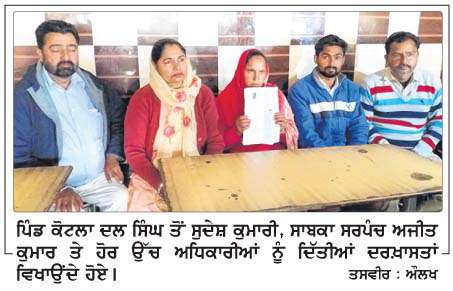 ਪਿੰਡ ਕੋਟਲਾ ਦਲ ਸਿੰਘ ਤੋਂ ਸੁਦੇਸ਼ ਕੁਮਾਰੀ, ਸਾਬਕਾ ਸਰਪੰਚ ਅਜੀਤ
ਕੁਮਾਰ ਤੇ ਹੋਰ ਉੱਚ ਅਧਿਕਾਰੀਆਂ ਨੂੰ ਦਿੱਤੀਆਂ ਦਰਖ਼ਾਸਤਾਂ
ਵਿਖਾਉਂਦੇ ਹੋਏ।
ਤਸਵੀਰ : ਔਲਖ